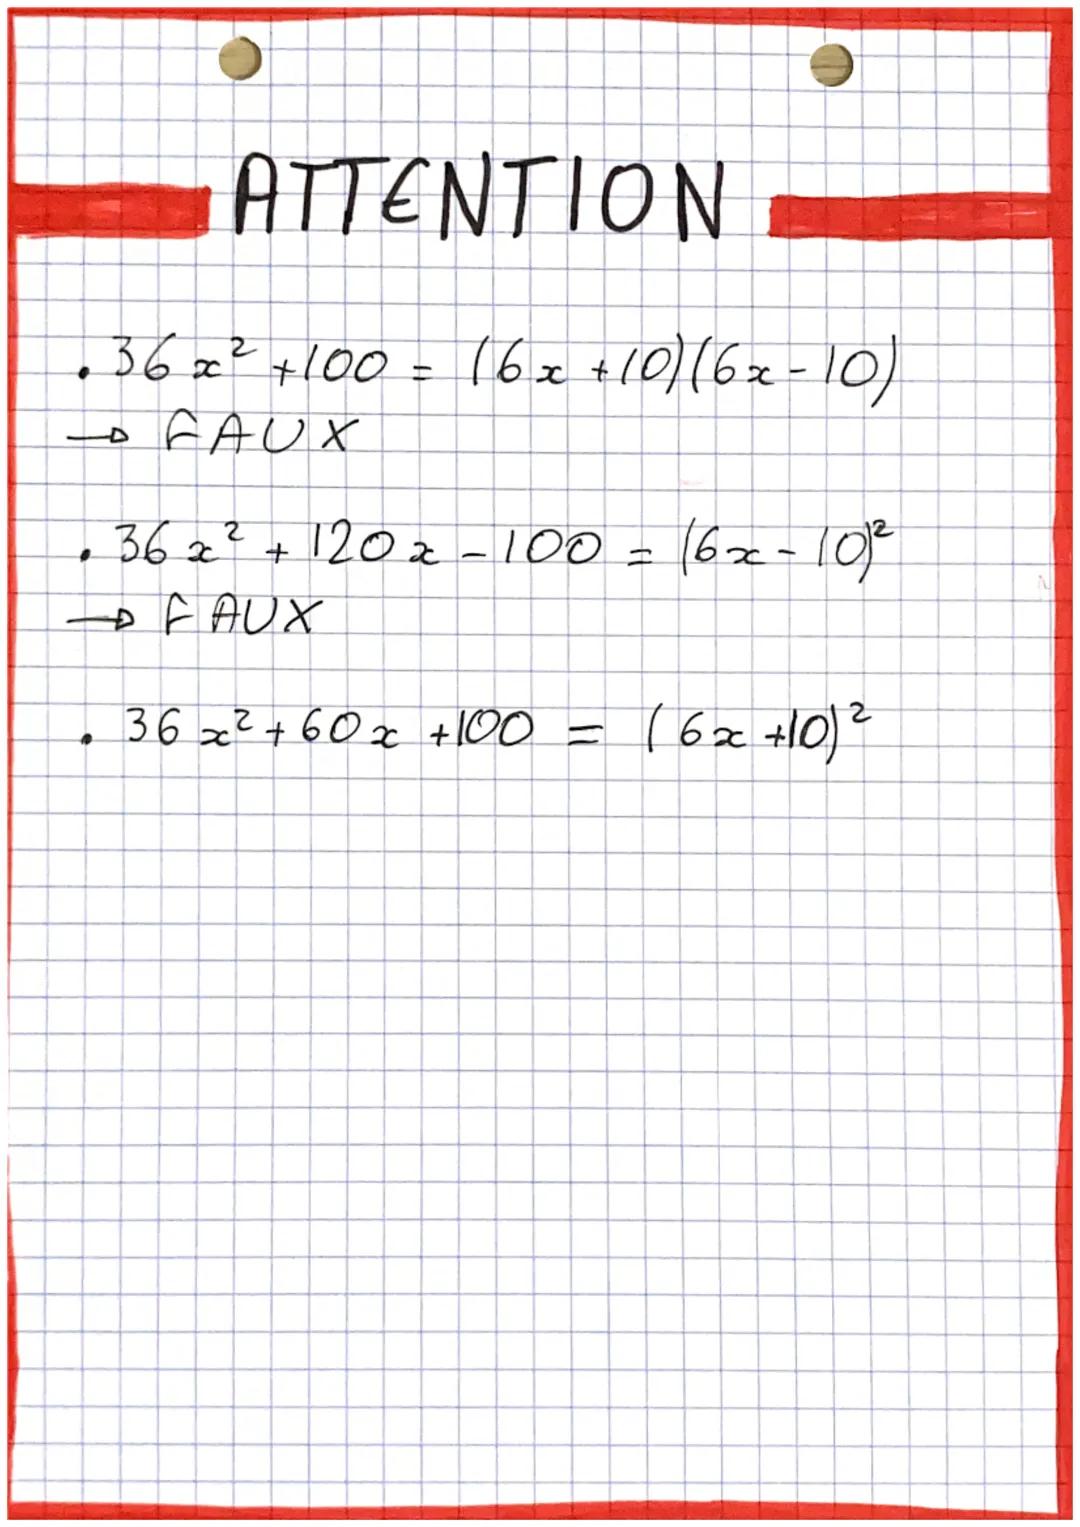 ATTENTION
. 36x² +100 = (6x +10)(6x-10)
→ FAUX
. 36x² + 120x - 100 = (6x - 10)²
→ FAUX
. 36x² + 60x +100 = (6x +10)²